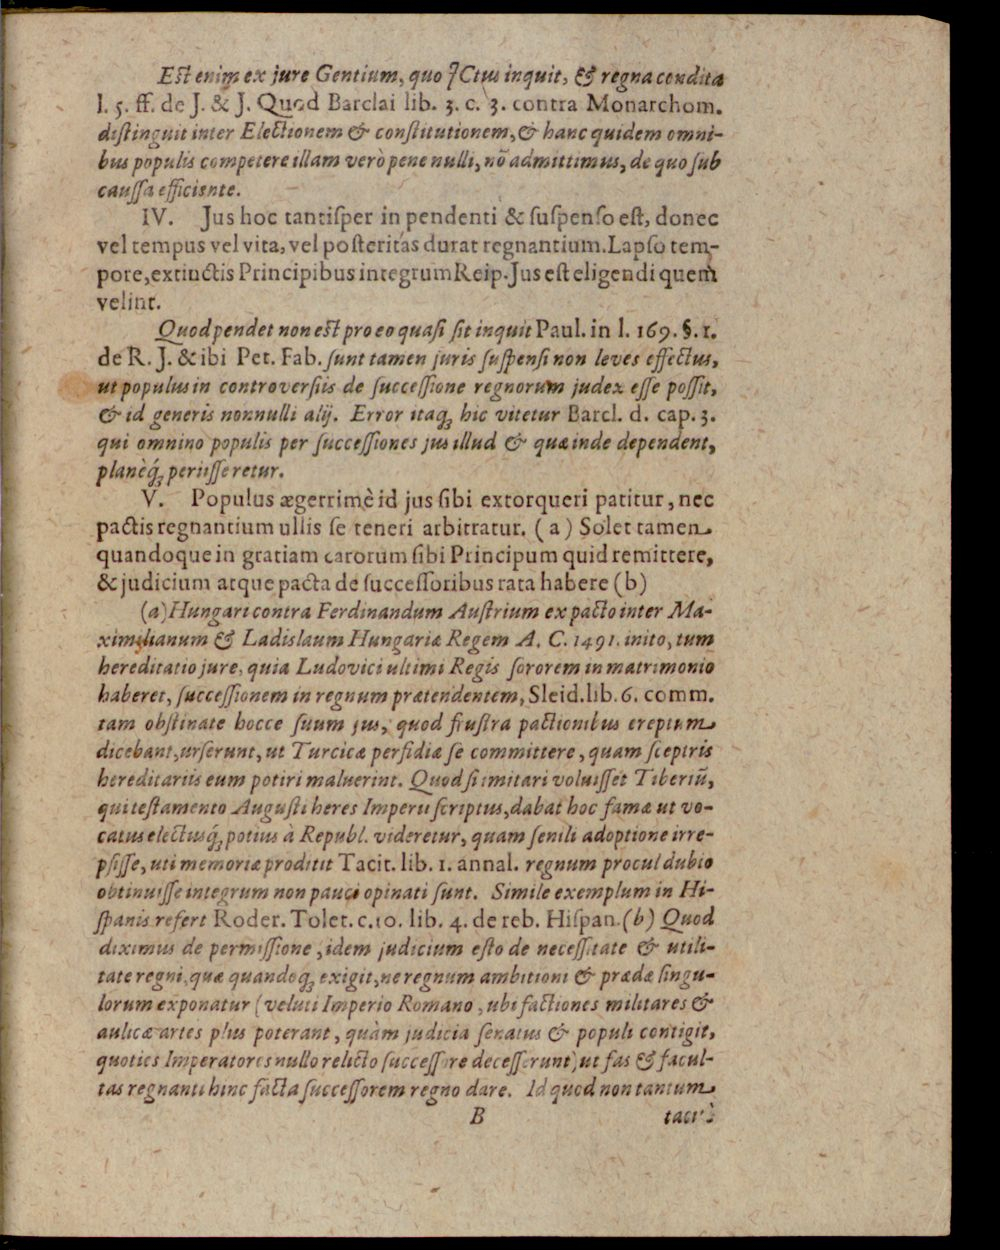 Est enim ex jure Gentium, quo JCtus inquit, & regna condita
l. 5. ff. de J. & J. Quod Barclai lib. 3. c. 3. contra Monarchom.
distinguit inter Electionem & constitutionem, & hanc quidem omni-
bus populis competere illam verò pene nulli, nō admittimus, de quo sub
caussa efficiente.
IV. Jus hoc tantisper in pendenti & suspenso est, donec
vel tempus vel vita, vel posteritas durat regnantium. Lapso tem-
pore, extinctis Principibus integrum Reip. Jus est eligendi quem
velint.
Quod pendet non est pro eo quasi sit inquit Paul. in l. 169. §. 1.
de R. J. & ibi Pet. Fab. sunt tamen juris suspensi non leves effectus,
ut populus in controversiis de successione regnorum judex esse possit,
& id generis nonnulli alij. Error itaq; hic vitetur Barcl. d. cap. 3.
qui omnino populis per successiones jus illud & quæ inde dependent,
planèq́; periisse retur.
V. Populus ægerrimè id jus sibi extorqueri patitur, nec
pactis regnantium ullis se teneri arbitratur. (a) Solet tamen
quandoque in gratiam carorum sibi Principum quid remittere,
& judicium atque pacta de successoribus rata habere (b)
(a) Hungari contra Ferdinandum Austrium ex pacto inter Ma-
ximilianum & Ladislaum Hungariæ Regem A. C. 1491. inito, tum
hereditatio jure, quia Ludovici ultimi Regis sororem in matrimonio
haberet, successionem in regnum prætendentem, Sleid. lib. 6. comm.
tam obstinate hocce suum jus, quod frustra pactionibus ereptum
dicebant, urserunt, ut Turcicæ perfidiæ se committere, quam sceptris
hereditariis eum potiri maluerint. Quod si imitari voluisset Tiberiū,
qui testamento Augusti heres Imperii scriptus, dabat hoc famæ ut vo-
catus electusq́; potius à Republ. videretur, quam senili adoptione irre-
psisse, uti memoriæ proditit Tacit. lib. 1. annal. regnum procul dubio
obtinuisse integrum non pauci opinati sunt. Simile exemplum in Hi-
spanis refert Roder. Tolet. c. 10. lib. 4. de reb. Hispan. (b) Quod
diximus de permissione, idem judicium esto de necessitate & utili-
tate regni, quæ quandoq; exigit, ne regnum ambitioni & prædæ singu-
lorum exponatur (veluti Imperio Romano, ubi factiones militares &
aulicæ artes plus poterant, quàm judicia senatus & populi contigit,
quoties Imperatores nullo relicto successore decesserunt) ut fas & facul-
tas regnanti hinc facta successorem regno dare. Id quod non tantum
B tacitè